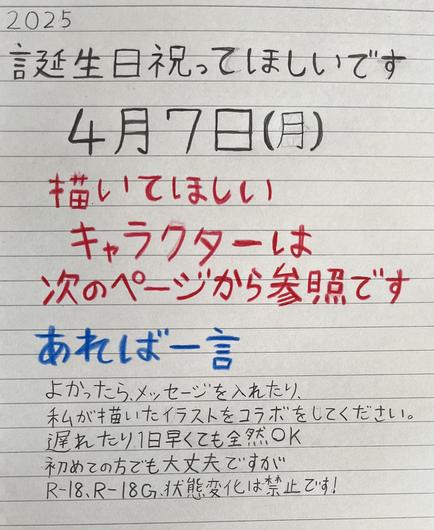 2025
誕生日祝ってほしいです
4月7日(月)
描いてほしい
キャラクターは
次のページから参照です
あれば一言
よかったら、メッセージを入れたり、
私が描いたイラストをコラボをしてください。
遅れたり1日早くても全然OK
初めての方でも大丈夫ですが
R-18、R-18G、状態変化は禁止です!